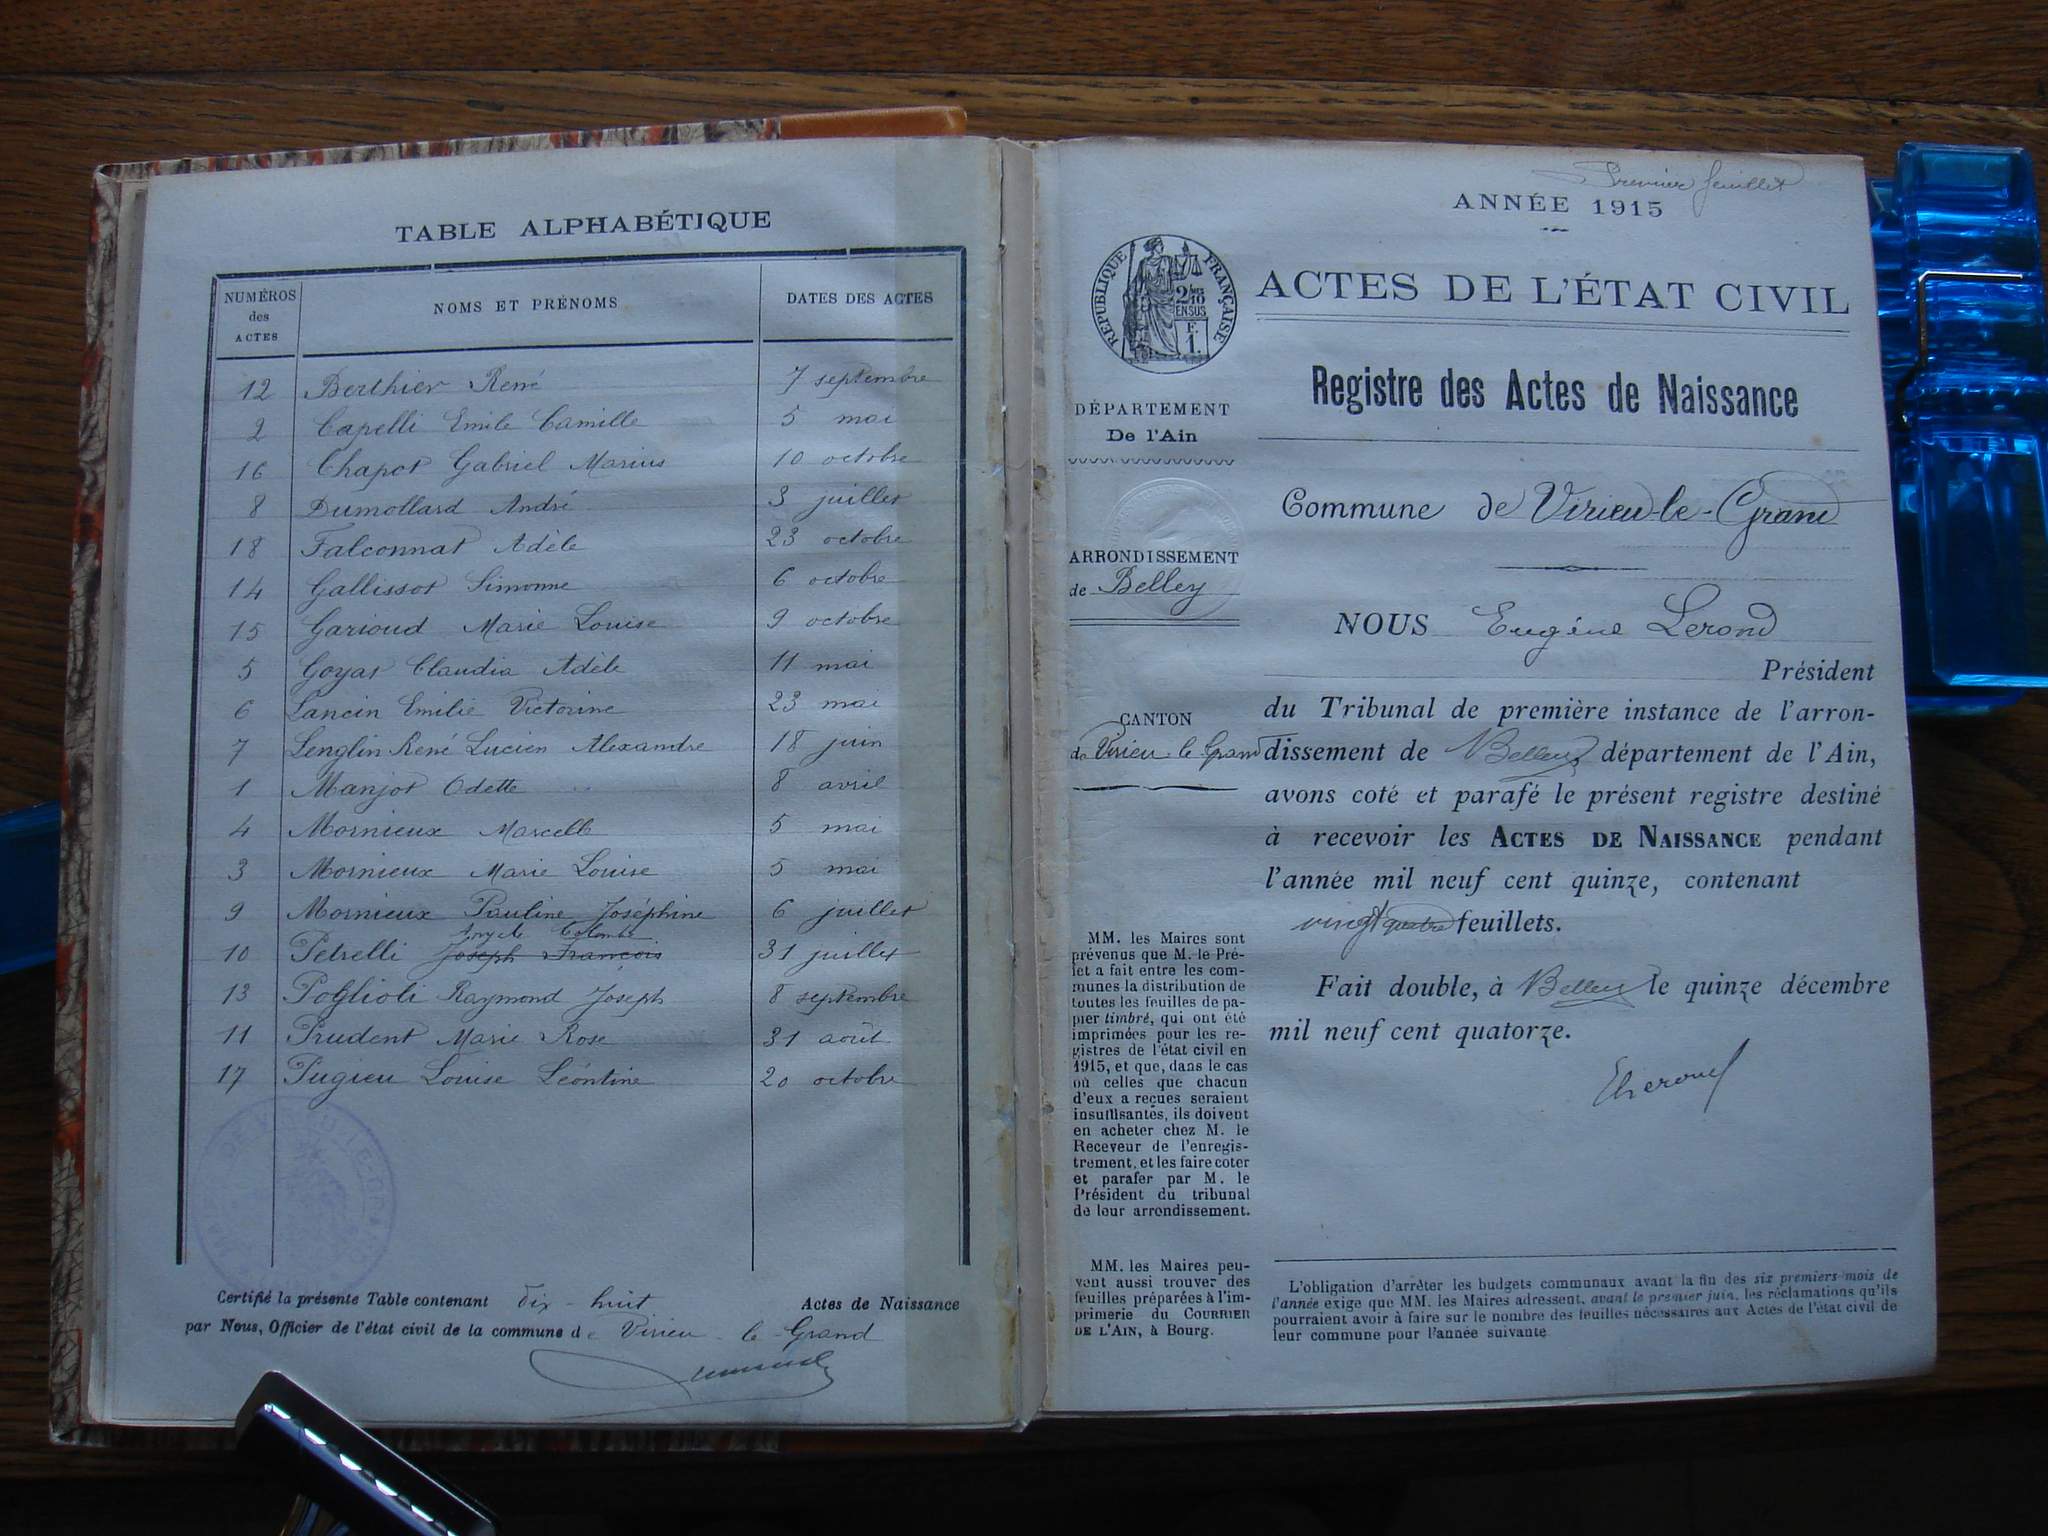 TABLE ALPHABÉTIQUE
NUMÉROS des ACTES NOMS ET PRÉNOMS DATES DES ACTES
12 Berthier René 7 septembre
2 Capelli Emile Camille 5 mai
16 Chapot Gabriel Marius 10 octobre
8 Dumollard André 3 juillet
18 Falconnat Adèle 23 octobre
14 Gallissot Simonne 6 octobre
15 Garioud Marie Louise 9 octobre
5 Goyat Claudia Adèle 11 mai
6 Lancin Emilie Victorine 23 mai
7 Lenglin René Lucien Alexandre 18 juin
1 Manjot Odette 8 avril
4 Mornieux Marcelle 5 mai
3 Mornieux Marie Louise 5 mai
9 Mornieux Pauline Joséphine 6 juillet
Colombe
10 Petrelli Joseph François 31 juillet
13 Poglioli Raymond Joseph 8 septembre
11 Prudent Marie Rose 31 août
17 Pugieu Louise Léontine 20 octobre
Certifié la présente Table contenant dix-huit Actes de Naissance
par Nous, Officier de l'état civil de la commune de Virieu-le-Grand
Premier feuillet
ANNÉE 1915
RÉPUBLIQUE FRANÇAISE
2 10
EN SUS
F.
1.
ACTES DE L'ÉTAT CIVIL
Registre des Actes de Naissance
DÉPARTEMENT
De l'Ain
Commune de Virieu-le-Grand
ARRONDISSEMENT
de Belley
CANTON
de Virieu-le-Grand
NOUS Eugène Lerond
Président
du Tribunal de première instance de l'arron-
dissement de Belley département de l'Ain,
avons coté et parafé le présent registre destiné
à recevoir les ACTES DE NAISSANCE pendant
l'année mil neuf cent quinze, contenant
vingt quatre feuillets.
Fait double, à Belley le quinze décembre
mil neuf cent quatorze.
MM. les Maires sont
prévenus que M. le Pré-
fet a fait entre les com-
munes la distribution de
toutes les feuilles de pa-
pier timbré, qui ont été
imprimées pour les re-
gistres de l'état civil en
1915, et que, dans le cas
où celles que chacun
d'eux a reçues seraient
insuffisantes, ils doivent
en acheter chez M. le
Receveur de l'enregis-
trement, et les faire coter
et parafer par M. le
Président du tribunal
de leur arrondissement.
MM. les Maires peu-
vent aussi trouver des
feuilles préparées à l'im-
primerie du COURRIER
DE L'AIN, à Bourg.
L'obligation d'arrêter les budgets communaux avant la fin des six premiers mois de
l'année exige que MM. les Maires adressent, avant le premier juin, les réclamations qu'ils
pourraient avoir à faire sur le nombre des feuilles nécessaires aux Actes de l'état civil de
leur commune pour l'année suivante